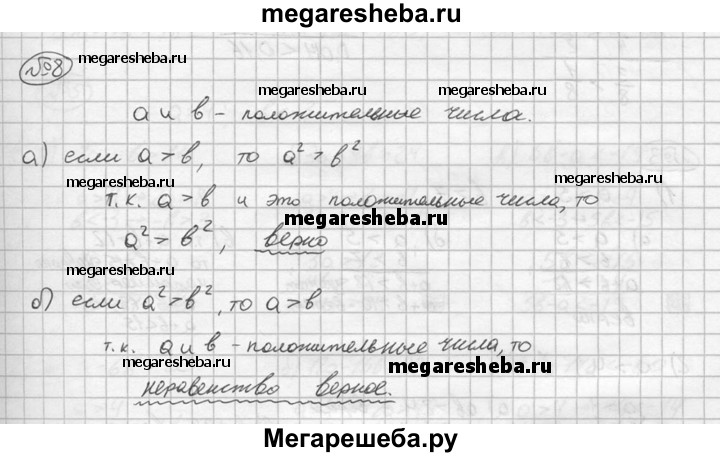 megaresheba.ru
№8
megaresheba.ru
megaresheba.ru megaresheba.ru
a и b - положительные числа.
а) если a > b, то a² > b²
megaresheba.ru
т.к. a > b и это положительные числа, то
megaresheba.ru
a² > b², верно
megaresheba.ru
б) если a² > b², то a > b
т.к. a и b - положительные числа, то
megaresheba.ru megaresheba.ru
неравенство верное.
Мегарешеба.ру